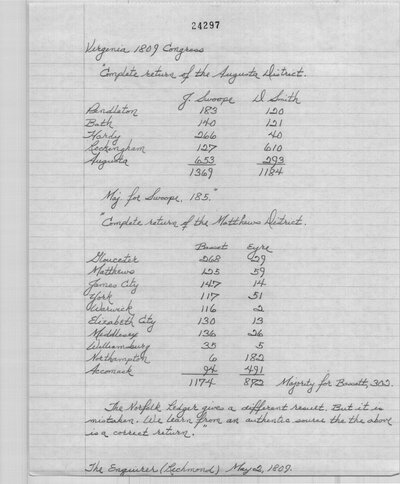 24297
Virginia 1809 Congress
"Complete return of the Augusta District.
J. Swoope D Smith
Pendleton 183 120
Bath 140 121
Hardy 266 40
Rockingham 127 610
Augusta 653 293
1369 1184
Maj. for Swoope, 185."
"Complete return of the Matthews District.
Basset Eyre
Gloucester 268 29
Matthews 125 59
James City 147 14
York 117 51
Warwick 116 2
Elizabeth City 130 13
Middlesex 136 26
Williamsburg 35 5
Northampton 6 182
Accomack 94 491
1174 872 Majority for Bassett, 302.
The Norfolk Ledger gives a different result. But it is
mistaken. We learn from an authentic source the the above
is a correct return."
The Enquirer (Richmond) May 2, 1809.